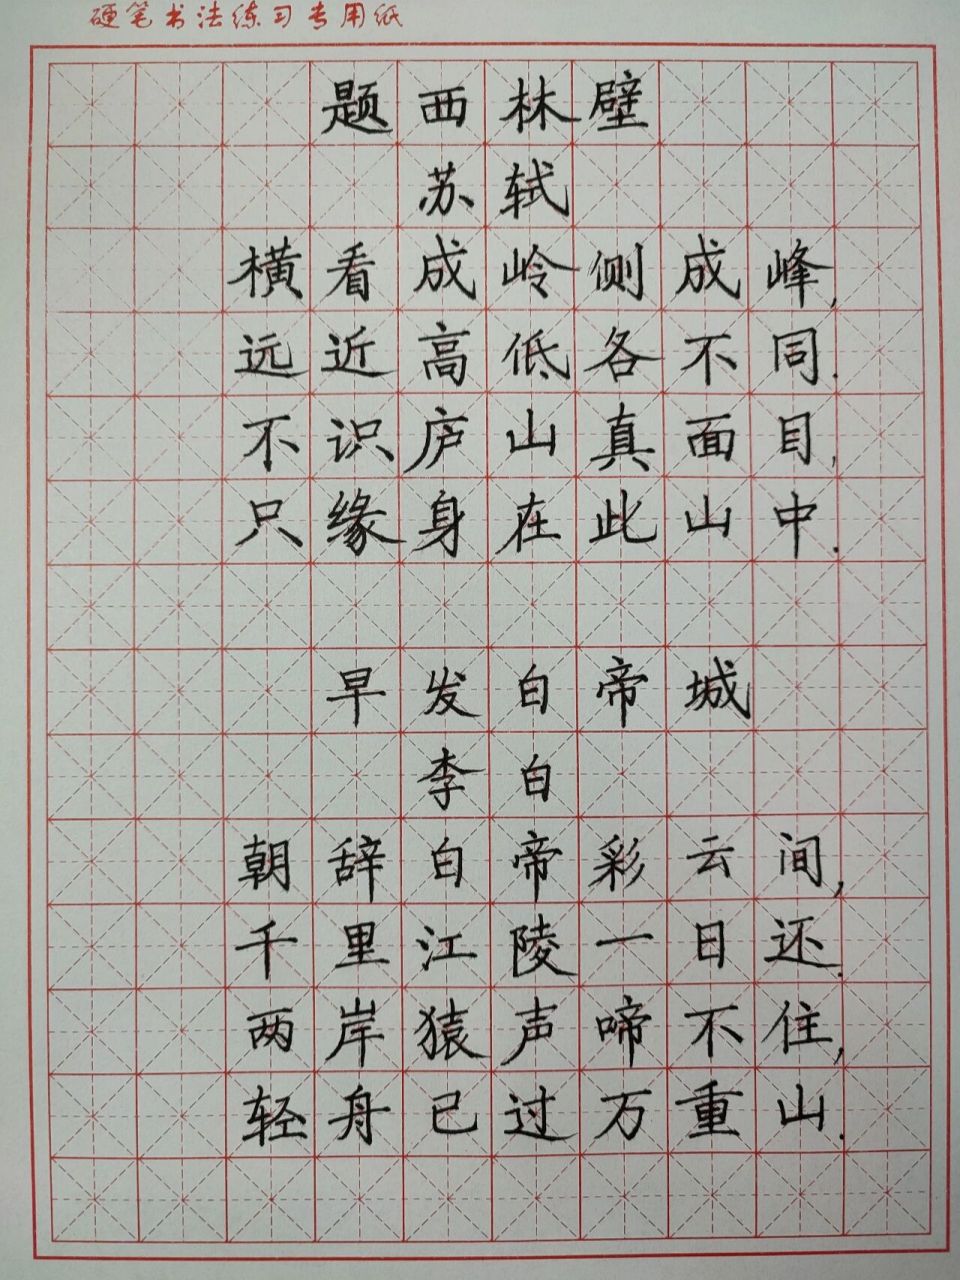 硬笔书法练习专用纸
题西林壁
苏轼
横看成岭侧成峰,
远近高低各不同.
不识庐山真面目,
只缘身在此山中.
早发白帝城
李白
朝辞白帝彩云间,
千里江陵一日还.
两岸猿声啼不住,
轻舟已过万重山.